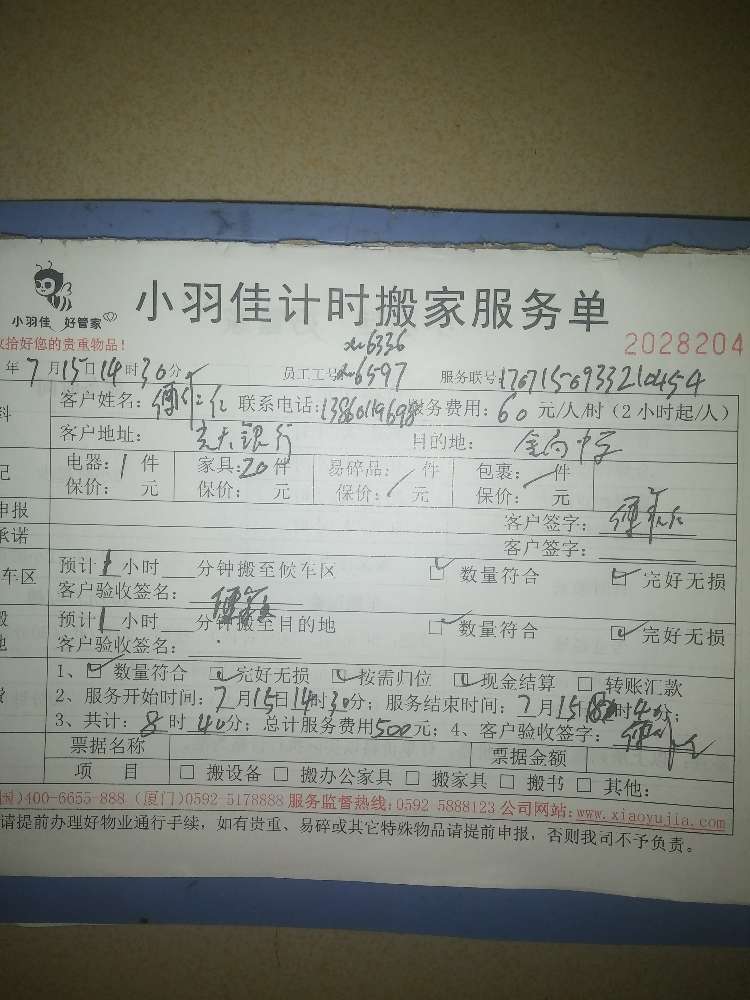 小羽佳 好管家
小羽佳计时搬家服务单
收拾好您的贵重物品!
2028204
xm6336
年7月15日14时30分
员工工号:xm6597
服务联号:
客户姓名:
联系电话:
服务费用:60元/人/时(2小时起/人)
客户地址:光大银行
目的地:金尚中学
电器:1件 家具:20件 易碎品: 件 包裹: 件
保价: 元 保价: 元 保价: 元 保价: 元
申报
客户签字:
承诺
客户签字:
车区
预计1小时 分钟搬至候车区 数量符合 完好无损
客户验收签名:
预计1小时 分钟搬至目的地 数量符合 完好无损
客户验收签名:
1、数量符合 完好无损 按需归位 现金结算 转账汇款
2、服务开始时间:7月15日14时30分;服务结束时间:7月15日 时 分;
3、共计:8时40分;总计服务费用500元;4、客户验收签字:
票据名称 票据金额
项 目 搬设备 搬办公家具 搬家具 搬书 其他:
国)400-6655-888 (厦门)0592 5178888 服务监督热线:0592 5888123 公司网站:www.xiaoyujia.com
请提前办理好物业通行手续,如有贵重、易碎或其它特殊物品请提前申报,否则我司不予负责。